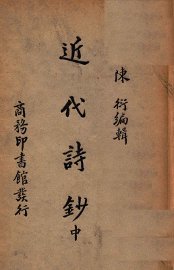 陳衍編輯
近代詩鈔中
商務印書館發行